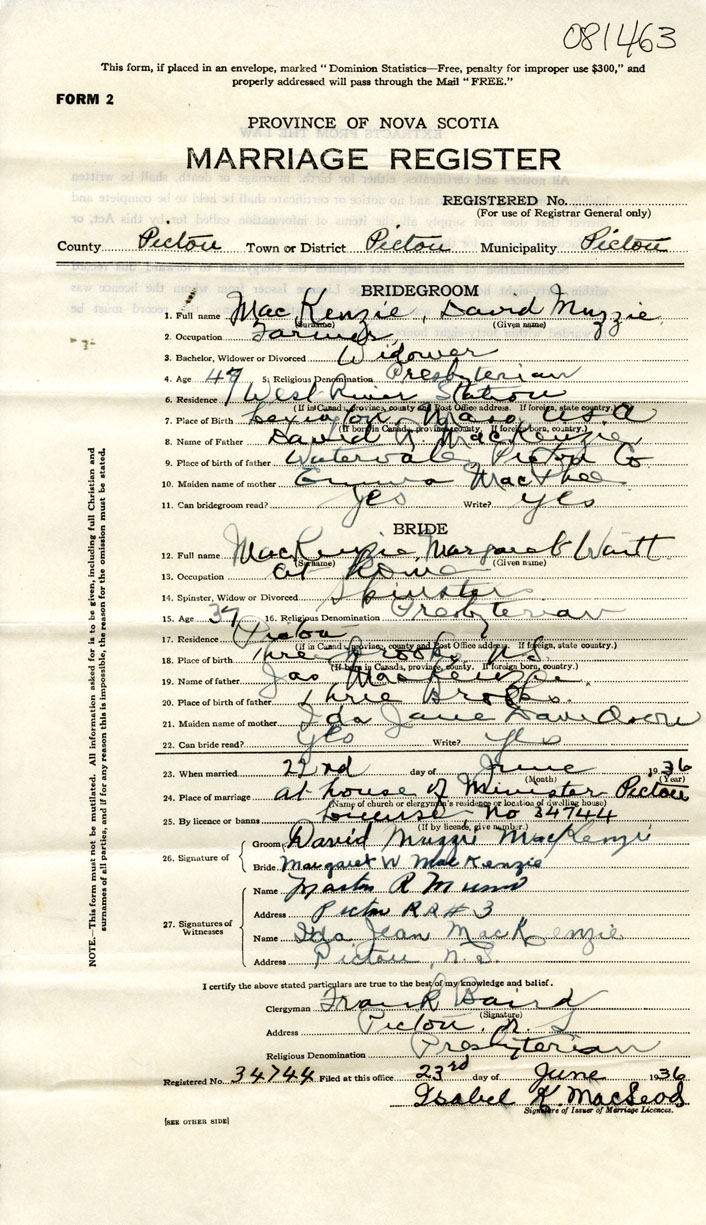 081463
This form, if placed in an envelope, marked "Dominion Statistics—Free, penalty for improper use $300," and
properly addressed will pass through the Mail "FREE."
FORM 2
PROVINCE OF NOVA SCOTIA
MARRIAGE REGISTER
REGISTERED No.
(For use of Registrar General only)
County Pictou Town or District Pictou Municipality Pictou
BRIDEGROOM
1. Full name MacKenzie, David Muzzie
(Surname) (Given name)
2. Occupation Farmer
3. Bachelor, Widower or Divorced Widower
4. Age 47 5. Religious Denomination Presbyterian
6. Residence West River Station
(If in Canada, province, county and Post Office address. If foreign, state country.)
7. Place of Birth Lexington, Mass, U.S.A
(If born in Canada, province, county. If foreign born, country.)
8. Name of Father David MacKenzie
9. Place of birth of father Watervale, Pictou Co
10. Maiden name of mother Emma MacPhee
11. Can bridegroom read? Yes Write? Yes
BRIDE
12. Full name MacKenzie, Margaret Waitt
(Surname) (Given name)
13. Occupation at home
14. Spinster, Widow or Divorced Spinster
15. Age 37 16. Religious Denomination Presbyterian
17. Residence Pictou
(If in Canada, province, county and Post Office address. If foreign, state country.)
18. Place of birth Three Brooks, N.S.
(If born in Canada, province, county. If foreign born, country.)
19. Name of father Jas MacKenzie
20. Place of birth of father Three Brooks.
21. Maiden name of mother Ida Jane Davidson
22. Can bride read? Yes Write? Yes
23. When married 22nd day of June 1936
(Month) (Year)
24. Place of marriage at house of Minister Pictou
(Name of church or clergyman's residence or location of dwelling house)
25. By licence or banns License No 34744
(If by licence, give number.)
26. Signature of
Groom David Muzzie MacKenzie
Bride Margaret W MacKenzie
27. Signatures of Witnesses
Name R Munro
Address Pictou RR # 3
Name Ida Jean MacKenzie
Address Pictou, N.S.
I certify the above stated particulars are true to the best of my knowledge and belief.
Clergyman Frank Baird
(Signature)
Address Pictou, N.S
Religious Denomination Presbyterian
Registered No. 34744 Filed at this office 23rd day of June 1936
Isabel K. MacLeod
Signature of Issuer of Marriage Licences.
[SEE OTHER SIDE]
NOTE.—This form must not be mutilated. All information asked for is to be given, including full Christian and
surnames of all parties, and if for any reason this is impossible, the reason for the omission must be stated.